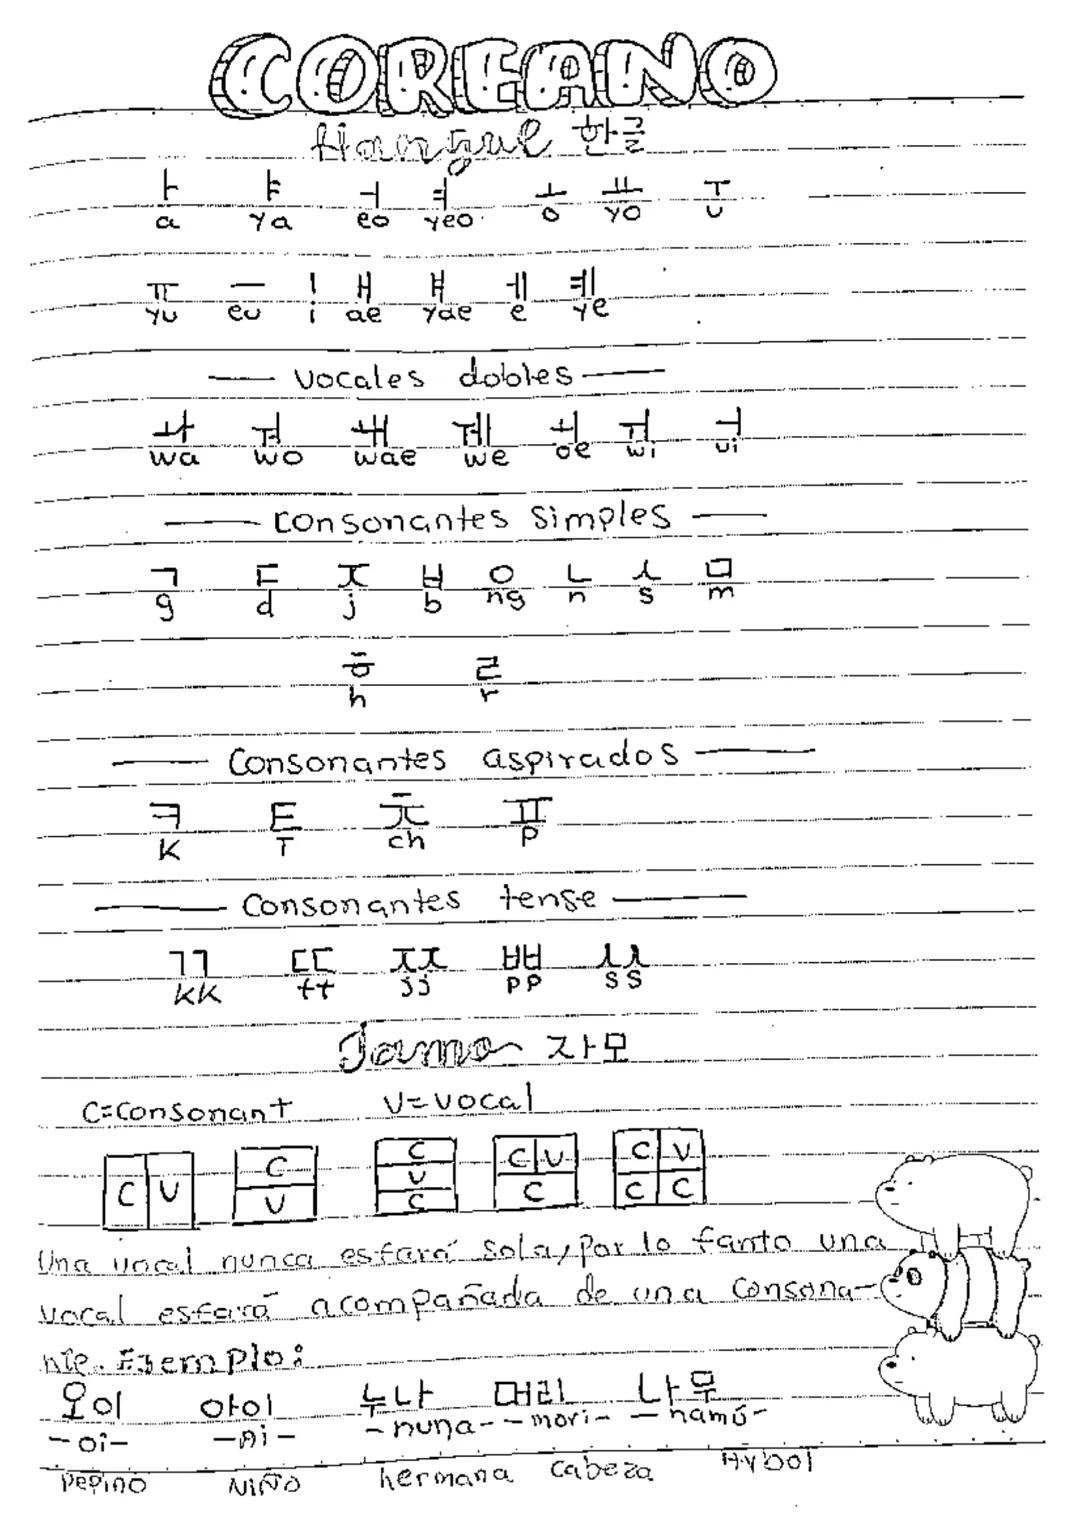 COREANO
Hangul 한글
ㅏ ㅑ ㅓ ㅕ ㅗ ㅛ ㅜ
a ya eo yeo o yo u
ㅠ ㅡ ㅣ ㅐ ㅒ ㅔ ㅖ
yu eu i ae yae e ye
Vocales dobles
ㅘ ㅝ ㅙ ㅞ ㅚ ㅟ ㅢ
wa wo wae we oe wi ui
Consonantes Simples
ㄱ ㄷ ㅈ ㅂ ㅇ ㄴ ㅅ ㅁ
g d j b ng n s m
ㅎ ㄹ
h r
Consonantes aspirados
ㅋ ㅌ ㅊ ㅍ
K T ch p
Consonantes tense
ㄲ ㄸ ㅉ ㅃ ㅆ
kk tt jj pp ss
Jamo 자모
C=Consonant V=vocal
C V C V C V C C V C C V C C
Una vocal nunca estará sola, Por lo tanto una
vocal estará acompañada de una Consona-
nte. Ejemplo:
오이 아이 누나 머리 나무
-oi- -Ai- -nuna- -mori- -namú-
Pepino Niño hermana cabeza Arbol